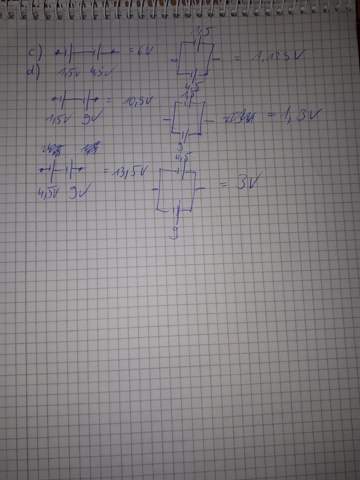 1,5
c) = 6V = 1,125V
d) 1,5V 4,5V 4,5
1,5
= 10,5V = 1,3V
1,5V 9V 9
4,5
= 13,5V = 3V
4,5V 9V
9